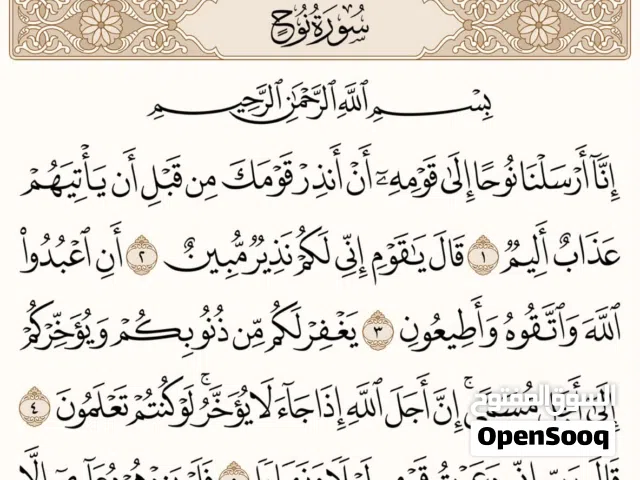 سُورَةُ نُوحٍ
بِسْمِ ٱللَّهِ ٱلرَّحْمَٰنِ ٱلرَّحِيمِ
إِنَّآ أَرْسَلْنَا نُوحًا إِلَىٰ قَوْمِهِۦٓ أَنْ أَنذِرْ قَوْمَكَ مِن قَبْلِ أَن يَأْتِيَهُمْ
عَذَابٌ أَلِيمٌ ١ قَالَ يَٰقَوْمِ إِنِّي لَكُمْ نَذِيرٌ مُّبِينٌ ٢ أَنِ ٱعْبُدُوا۟
ٱللَّهَ وَٱتَّقُوهُ وَأَطِيعُونِ ٣ يَغْفِرْ لَكُم مِّن ذُنُوبِكُمْ وَيُؤَخِّرْكُمْ
إِلَىٰٓ أَجَلٍ مُّسَمًّى ۚ إِنَّ أَجَلَ ٱللَّهِ إِذَا جَآءَ لَا يُؤَخَّرُ ۚ لَوْ كُنتُمْ تَعْلَمُونَ ٤
السوق المفتوح
OpenSooq